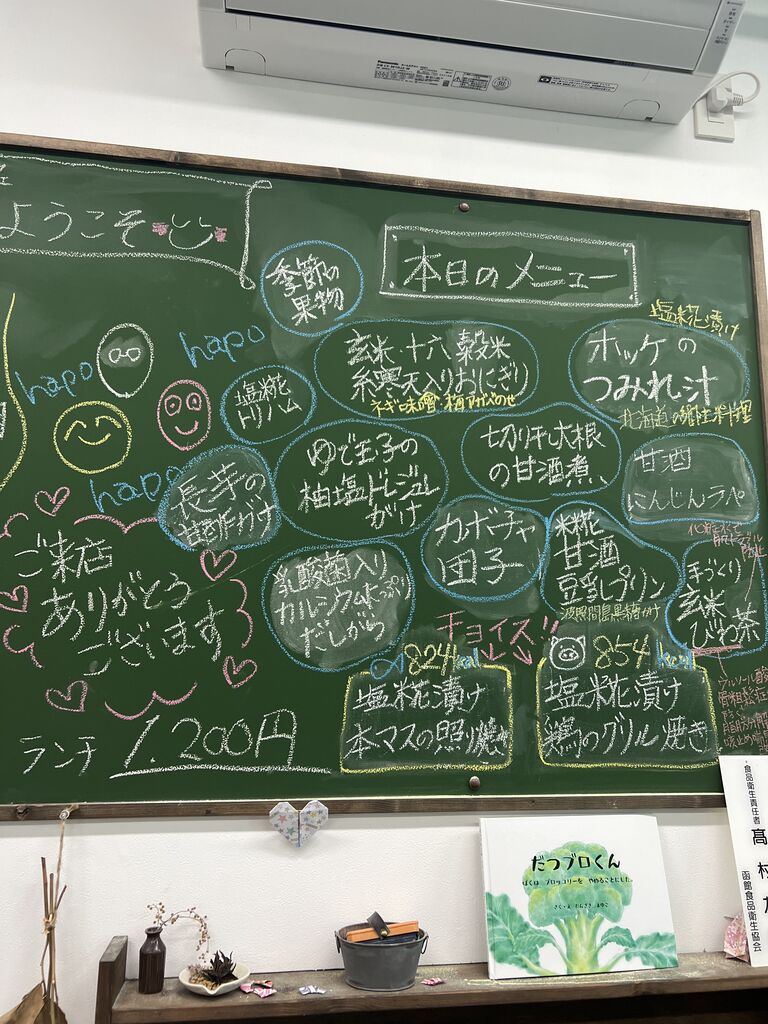 Panasonic
ようこそ
本日のメニュー
季節の
果物
hapo
hapo
hapo
塩糀
トリハム
玄米・十六穀米
糸寒天入りおにぎり
ネギ味噌
塩糀漬け
ホッケの
つみれ汁
北海道の郷土料理
長芋の
ゆで玉子の
柚塩ドレジュレ
がけ
切り干大根
の甘酒煮
甘酒
にんじんラペ
カボチャ
団子
糀
甘酒
豆乳プリン
波照間島黒糖がけ
手づくり
玄米
びわ茶
乳酸菌入り
カルシウムたっぷり
だしがら
ご来店
ありがとう
ございます
チョイス!!
824kcal
塩糀漬け
本マスの照り焼き
854kcal
塩糀漬け
鶏のグリル焼き
ランチ 1.200円
だつブロくん
ぼくは ブロッコリーを やめることにした。
食品衛生責任者
髙村
函館食品衛生協会